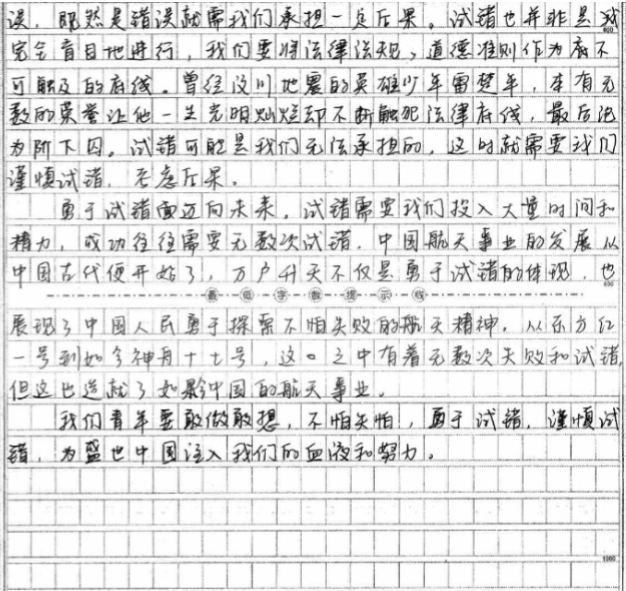 误，既然是错误就需我们承担一定后果。试错也并非是我
600
完全盲目地进行，我们要将法律法规，道德准则作为底不
可触及的底线。曾经汶川地震的英雄少年雷楚年，本有无
数的荣誉让他一生光明灿烂却不断触犯法律底线，最后沦
为阶下囚。试错可能是我们无法承担的，这时就需要我们
谨慎试错，考虑后果。
勇于试错面迈向未来。试错需要我们投入大量时间和
精力，成功往往需要无数次试错，中国航天事业的发展从
中国古代便开始了，万户升天不仅是勇于试错的体现，也
800
最低字数提示线
展现了中国人民勇于探索不怕失败的航天精神，从东方红
一号到如今神舟十七号，这。之中有着无数次失败和试错，
但这也造就了如今中国的航天事业。
我们青年要敢做敢想，不怕失怕，勇于试错，谨慎试
错，为盛世中国注入我们的血液和努力。
1000